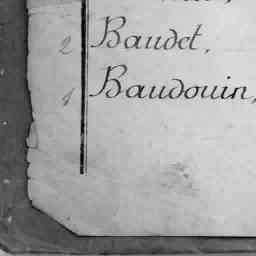 2 Baudet,
1 Baudouin,